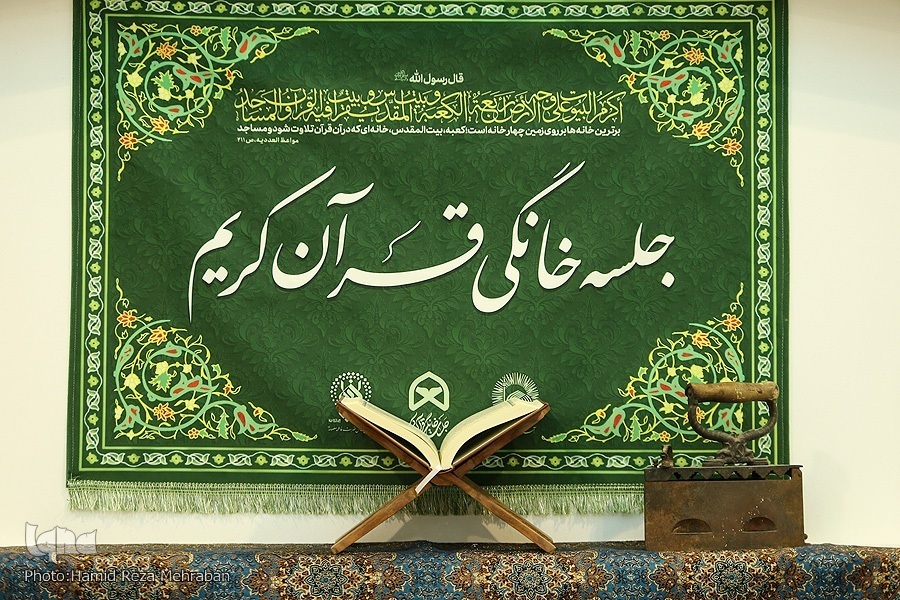 قال رسول الله ﷺ
اکرم البیوت علی وجه الارض اربعة: الکعبة و بیت المقدس و بیت یقرأ فیه القرآن و المساجد
برترین خانه‌ها بر روی زمین چهار خانه است: کعبه، بیت المقدس، خانه‌ای که در آن قرآن تلاوت شود و مساجد
مواعظ العددیه، ص ۲۱۱
جلسه خانگی قرآن کریم
iqna
Photo:Hamid Reza Mehraban